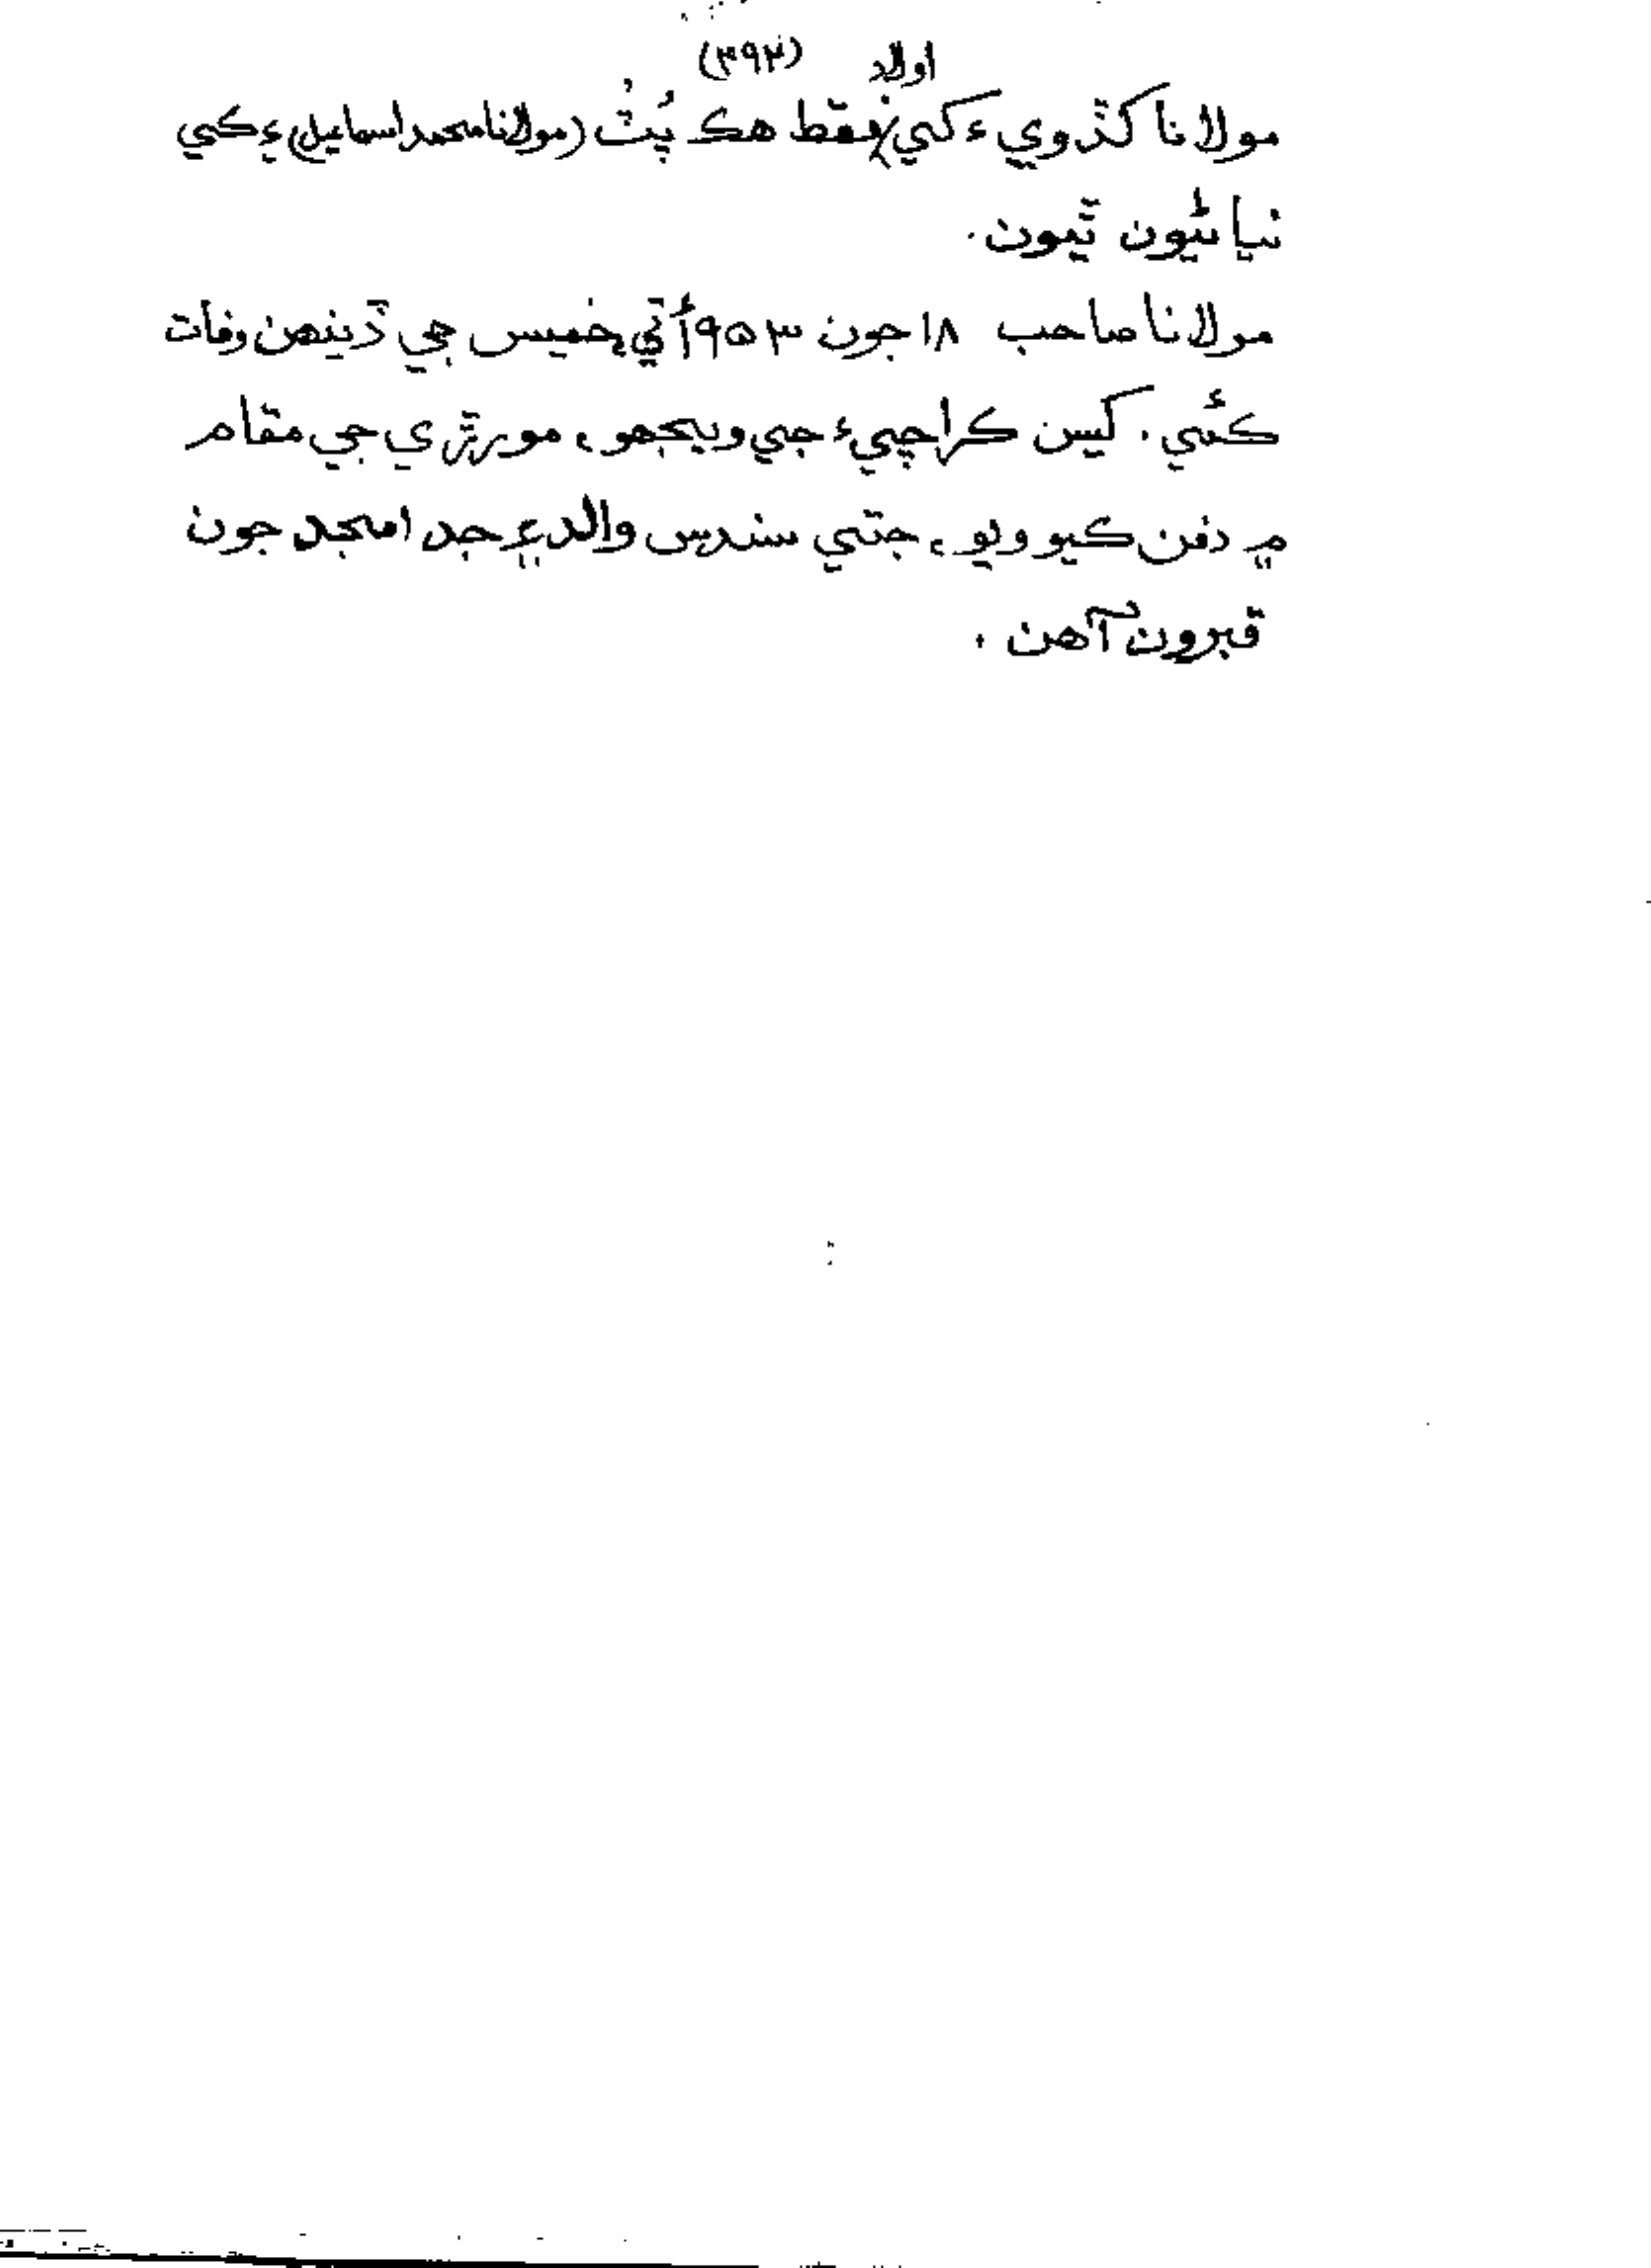 (۳۹۳)
اولاد
مولانا کڏوي ء کي فقط هڪ پُٽ (مولانا محمد اسمايل) ۽ ڪي
نياڻيون ٿيون.
مولانا صاحب ۱۸ جون ۱۹۵۳ع تي خميس جي ڏينهن وفات
ڪئي. کين ڪراچيءَ جي ويجهو، مورڙي جي مقام
۾ دفن ڪيو ويو، جتي سندس والد ۽ جد امجد جون
قبرون آهن.